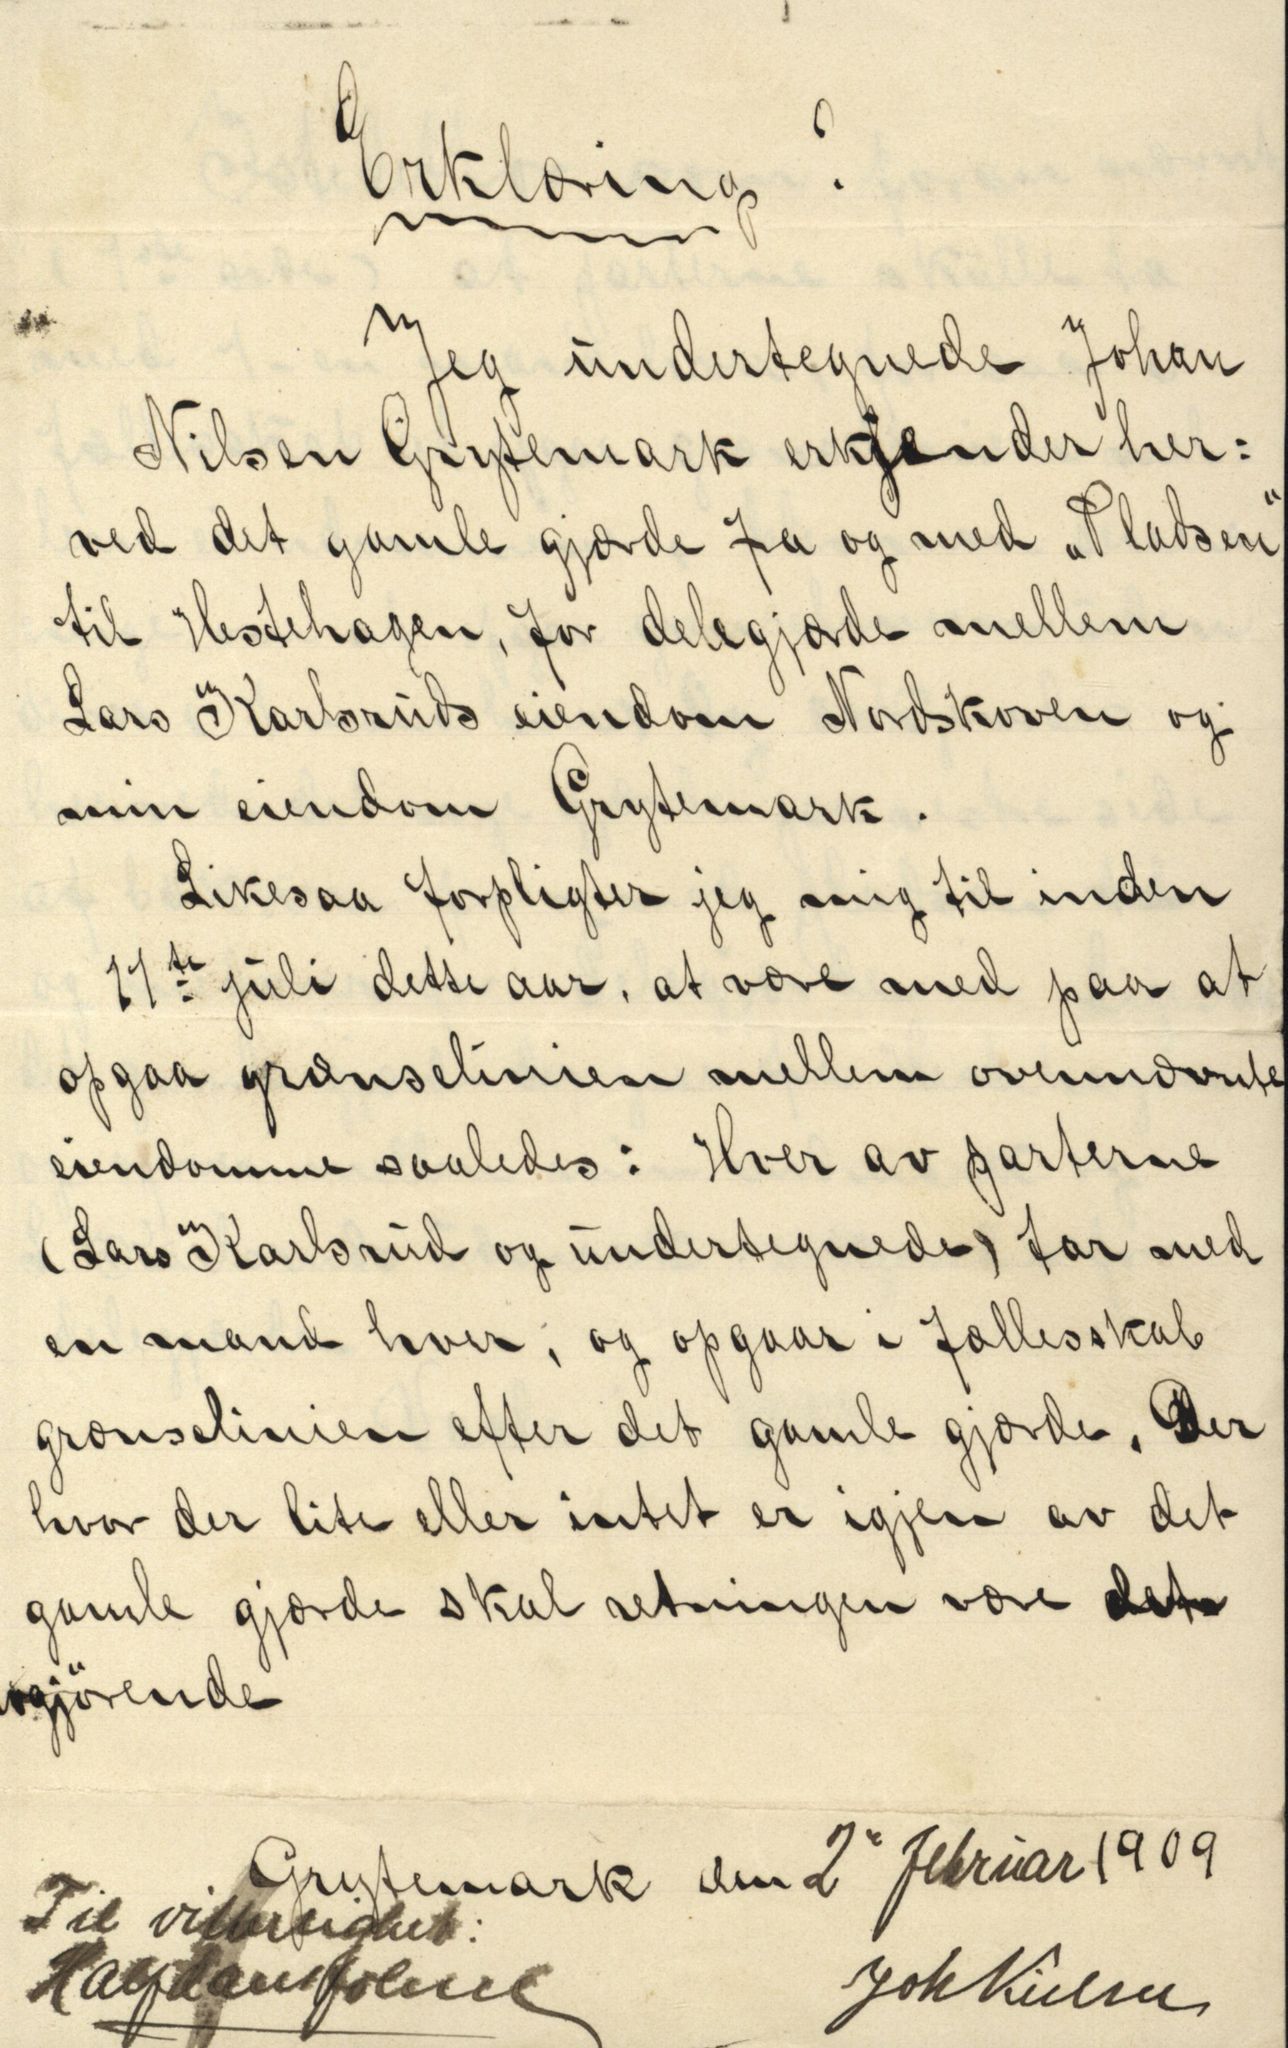 Erklæring:
Jeg undertegnede Johan
Nilsen Grytemark erkjender her:
ved det gamle gjærde fra og med „Pladsen"
til Hestehagen, for delegjærde mellem
Lars Karlsruds eiendom Nordskoven og
min eiendom Grytemark.
Likesaa forpligter jeg mig til inden
11te juli dette aar, at være med paa at
opgaa grænselinien mellem ovennævnte
eiendomme saaledes: Hver av parterne
(Lars Karlsrud og undertegnede) tar med
en mand hver, og opgaar i fællesskab
grænselinien efter det gamle gjærde. Der
hvor der lite eller intet er igjen av det
gamle gjærde skal retningen være det
avgjörende
Grytemark den 2n februar 1909
Til vitterlighet:
Halfdan
Joh Nielsen